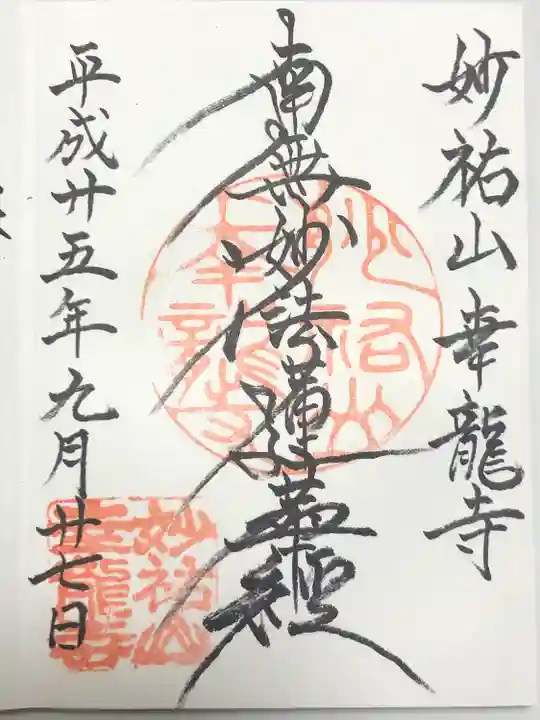 妙祐山幸龍寺
南無妙法蓮華経
平成廿五年九月廿七日
妙祐山
幸龍寺
妙祐山
幸龍寺